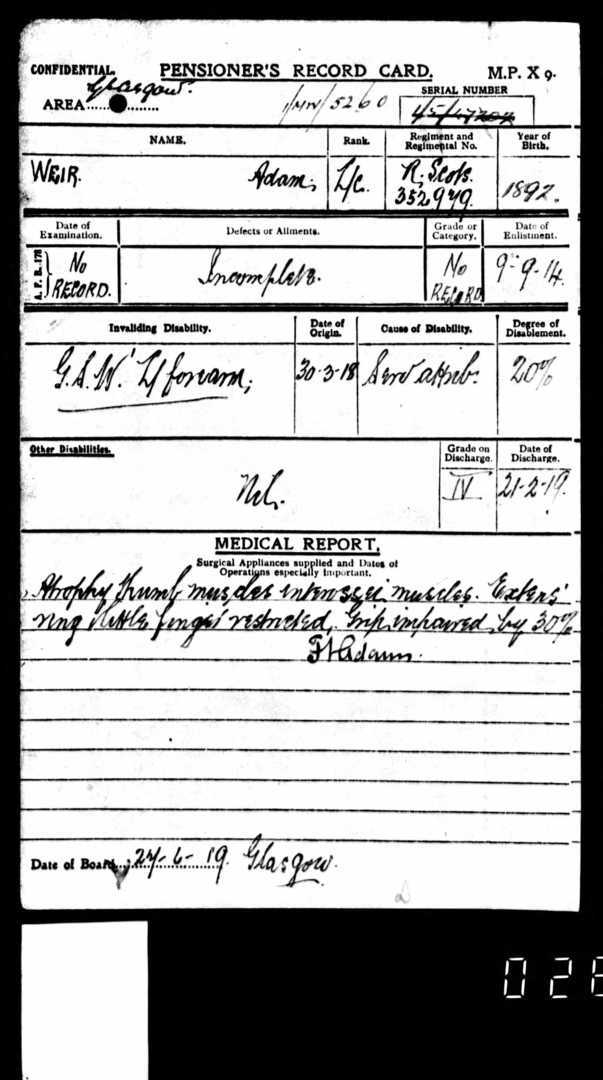 CONFIDENTIAL. PENSIONER'S RECORD CARD. M.P. X 9.
AREA Glasgow. SERIAL NUMBER
1/MW/5260
NAME. Rank. Regiment and Regimental No. Year of Birth.
WEIR. Adam, L/c. R. Scots. 352979. 1892.
Date of Examination. Defects or Ailments. Grade or Category. Date of Enlistment.
A. F. B. 178 No RECORD. Incomplete. No RECORD 9-9-14.
Invaliding Disability. Date of Origin. Cause of Disability. Degree of Disablement.
G.S.W. L/forearm, 30-3-18 Serv attrib. 20%
Other Disabilities. Grade on Discharge. Date of Discharge.
Nil. IV 21-2-19.
MEDICAL REPORT.
Surgical Appliances supplied and Dates of
Operations especially important.
Atrophy thumb muscles interossei muscles. Extens'
ring little finger restricted, Grip impaired by 30%
Date of Board 24-6-19. Glasgow.
028